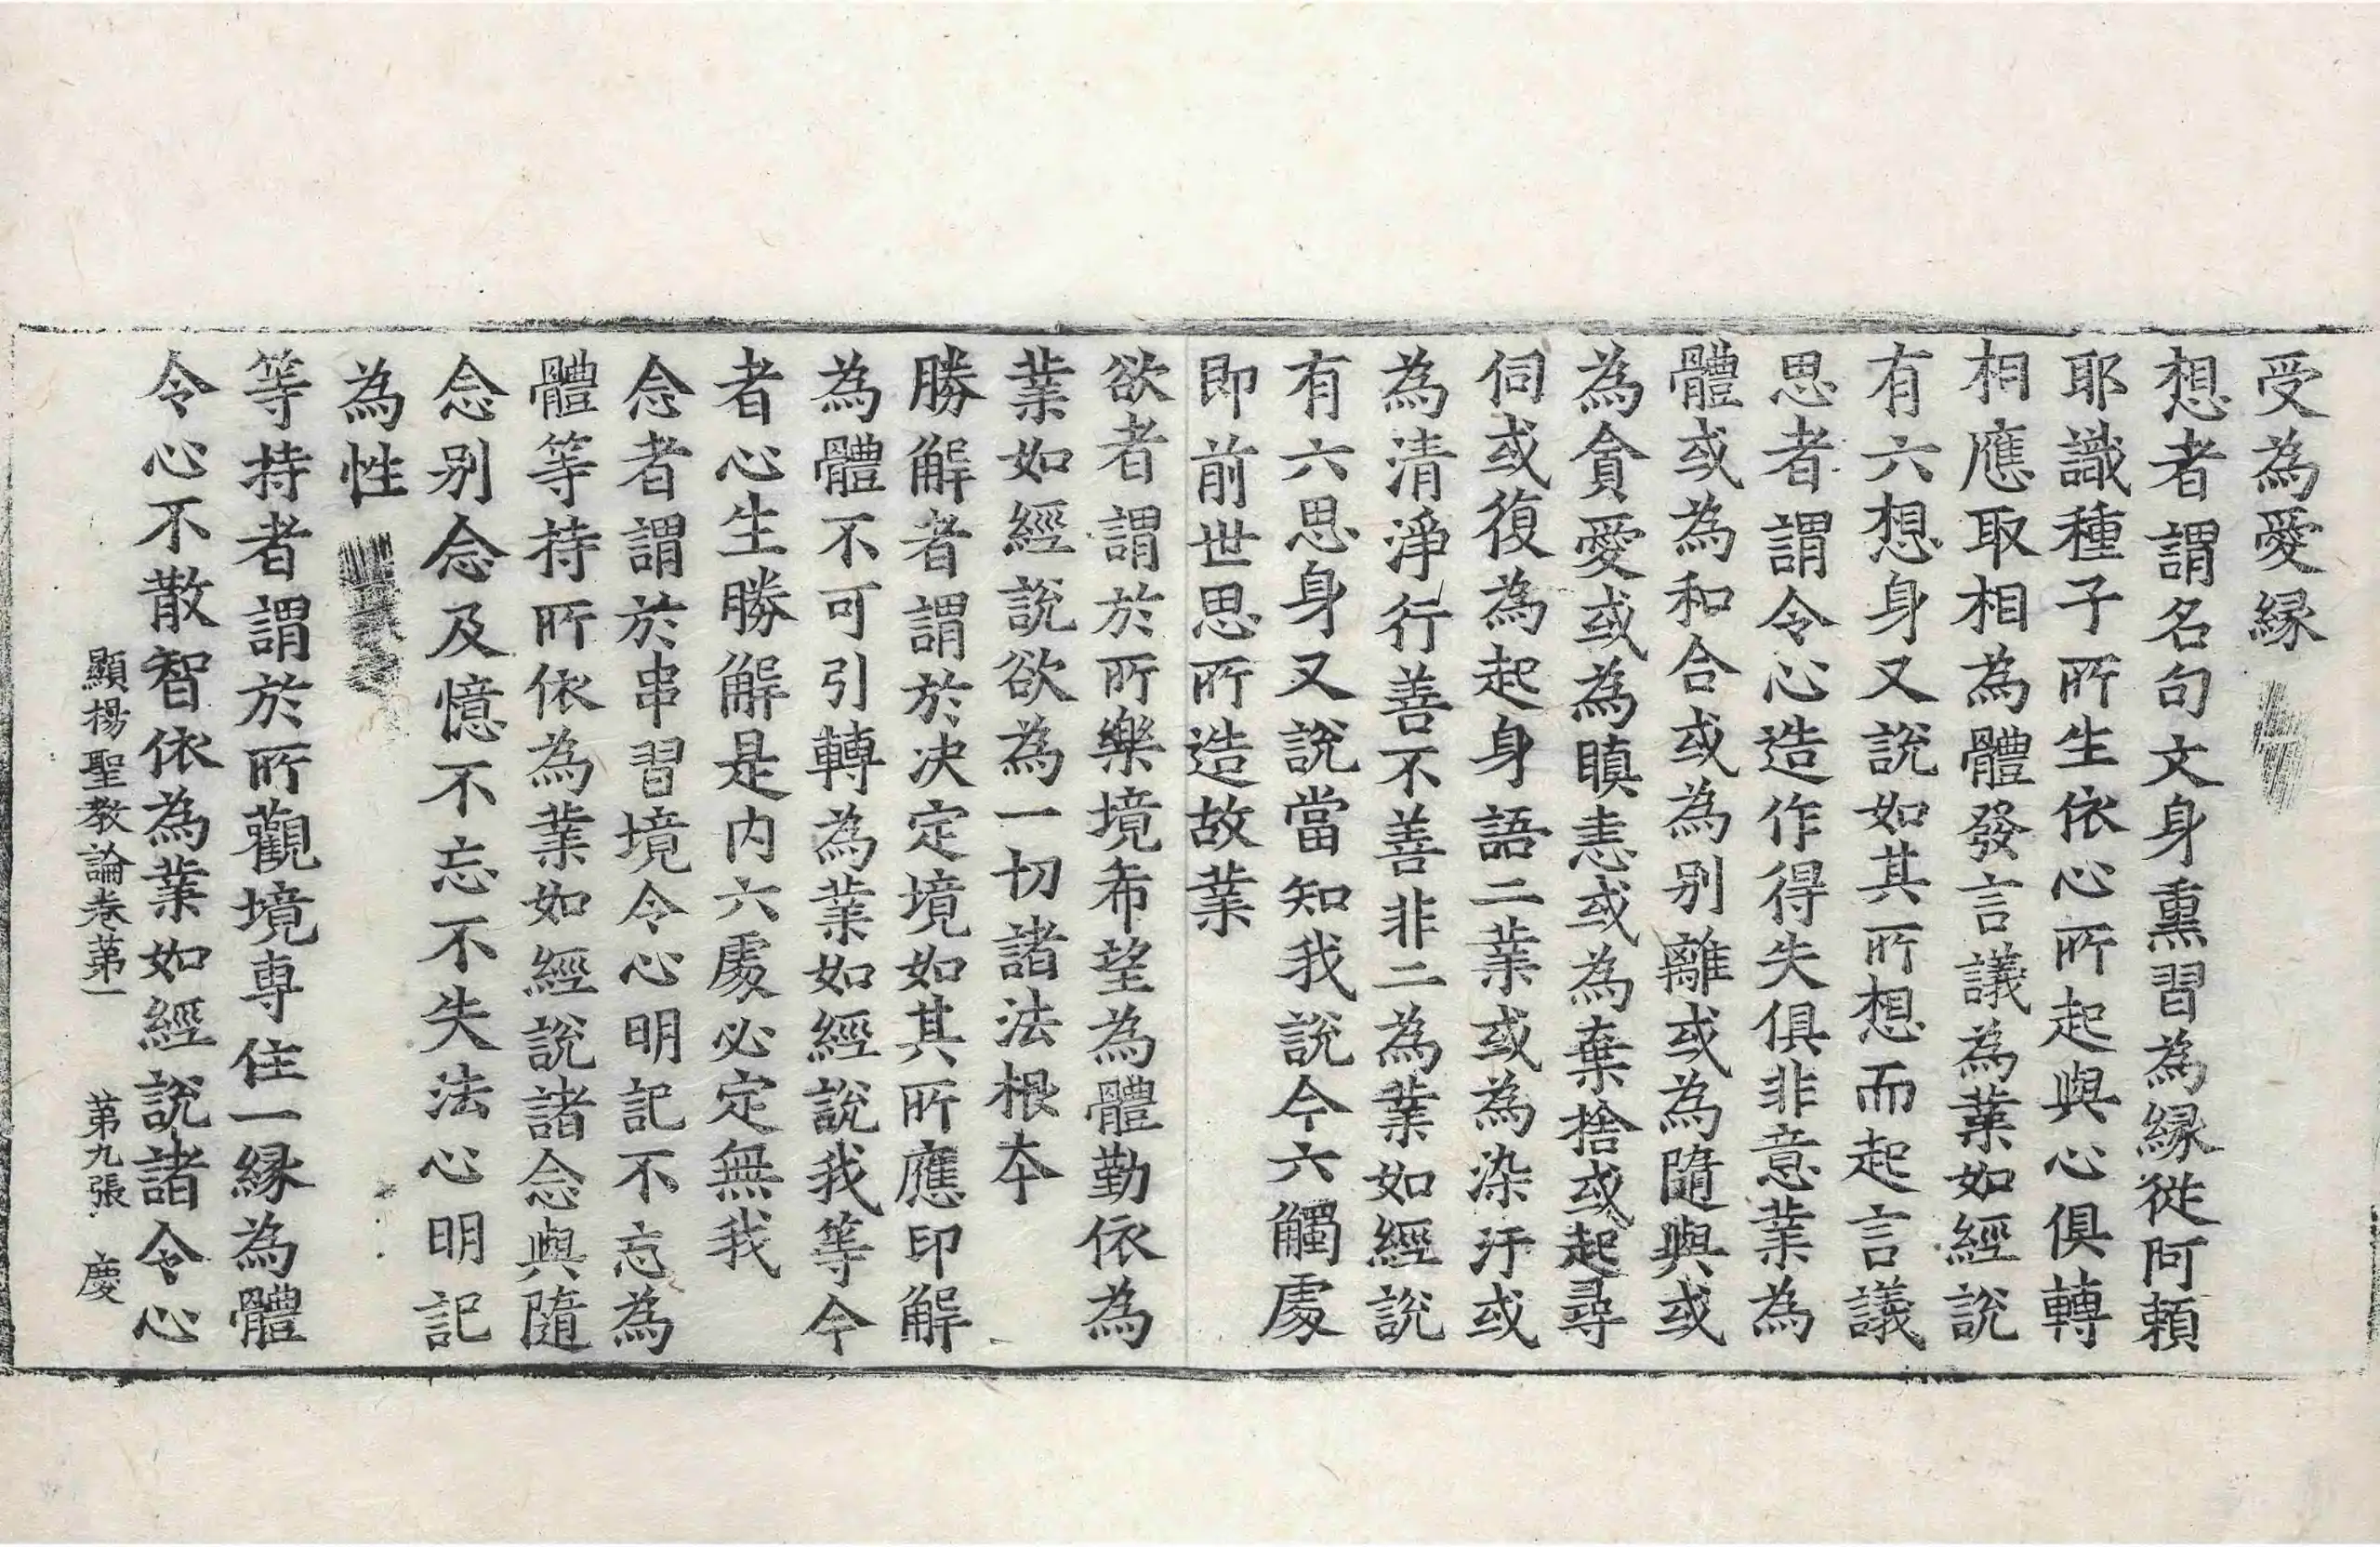 受為愛縁
想者謂名句文身熏習為縁從阿頼
耶識種子所生依心所起與心俱轉
相應取相為體發言議為業如經說
有六想身又說如其所想而起言議
思者謂令心造作得失俱非意業為
體或為和合或為别離或為隨與或
為貪愛或為瞋恚或為棄捨或起尋
伺或復為起身語二業或為染汙或
為清淨行善不善非二為業如經說
有六思身又說當知我說今六觸處
即前世思所造故業
欲者謂於所樂境希望為體勤依為
業如經說欲為一切諸法根本
勝解者謂於决定境如其所應印解
為體不可引轉為業如經說我等今
者心生勝解是内六處必定無我
念者謂於串習境令心明記不忘為
體等持所依為業如經說諸念與隨
念别念及憶不忘不失法心明記
為性
等持者謂於所觀境専住一縁為體
令心不散智依為業如經說諸令心
顯揚聖教論卷苐一 苐九張 慶